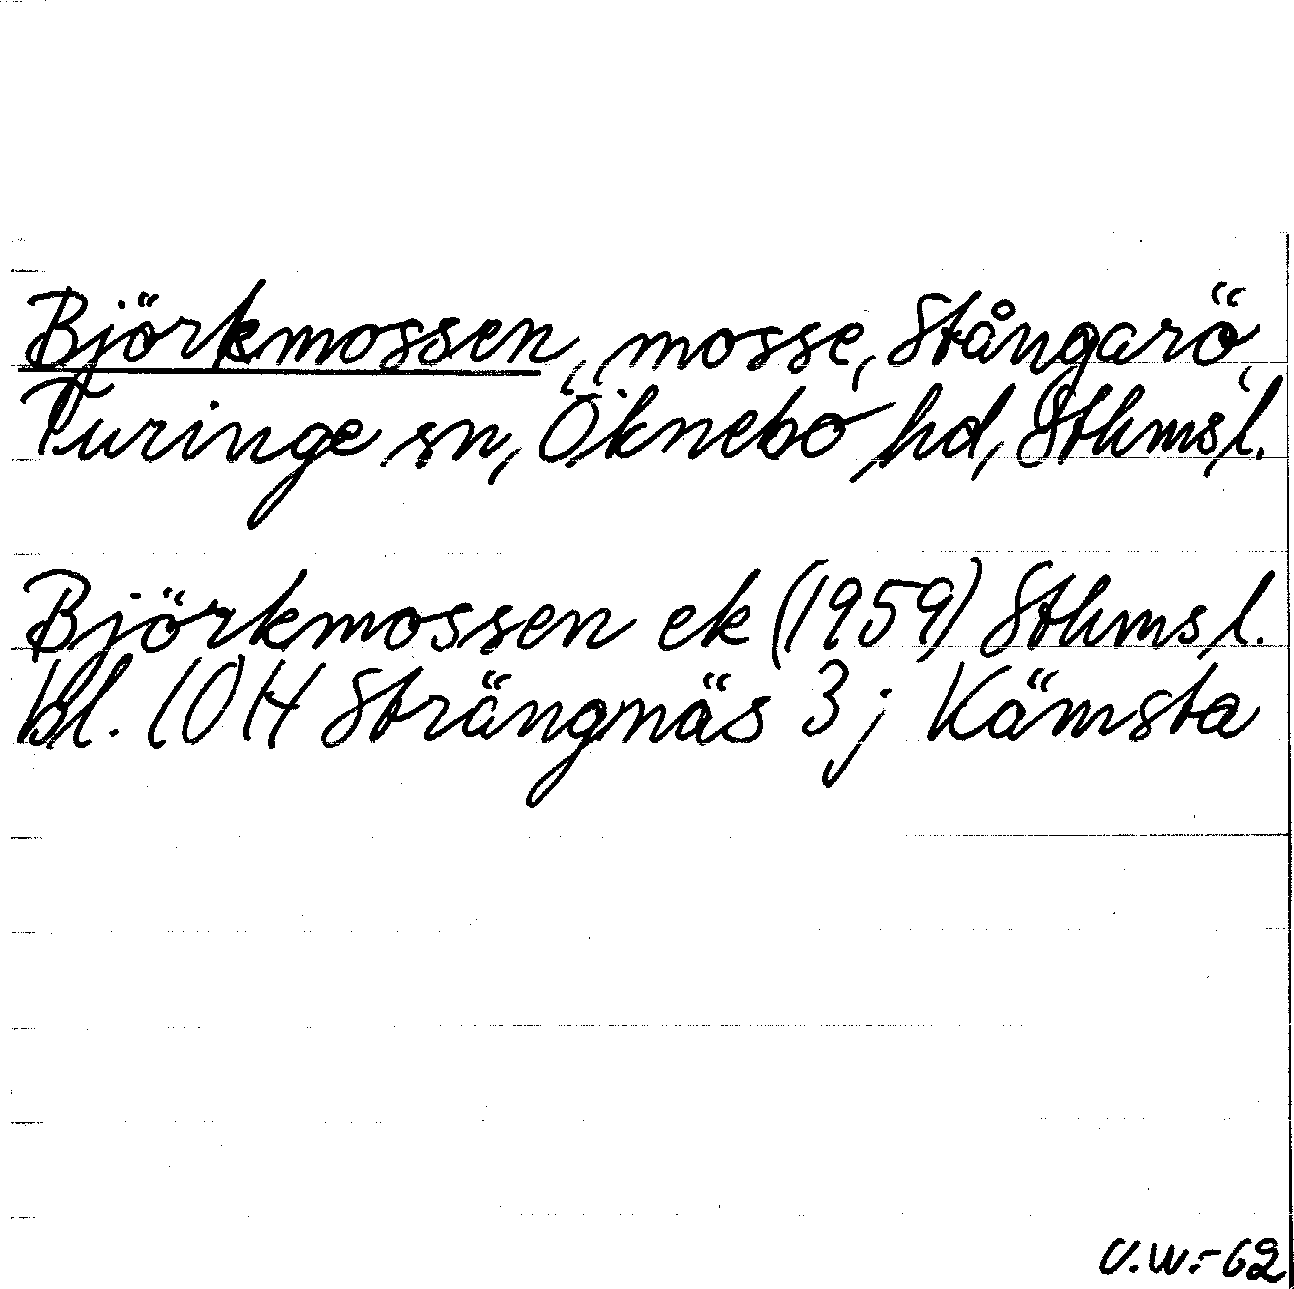 Björkmossen, mosse, Stångarö,
Turinge sn, Öknebo hd, Sthms l.
Björkmossen ek (1959) Sthms l.
bl. 10 H Strängnäs 3 j Kämsta
U.W.-62